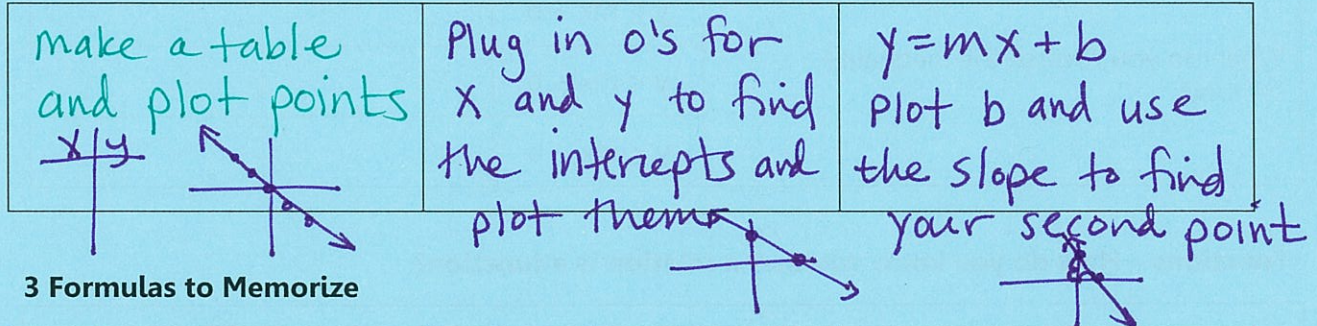 make a table
and plot points
x y
Plug in 0's for
x and y to find
the intercepts and
plot them
y=mx+b
Plot b and use
the slope to find
your second point
3 Formulas to Memorize